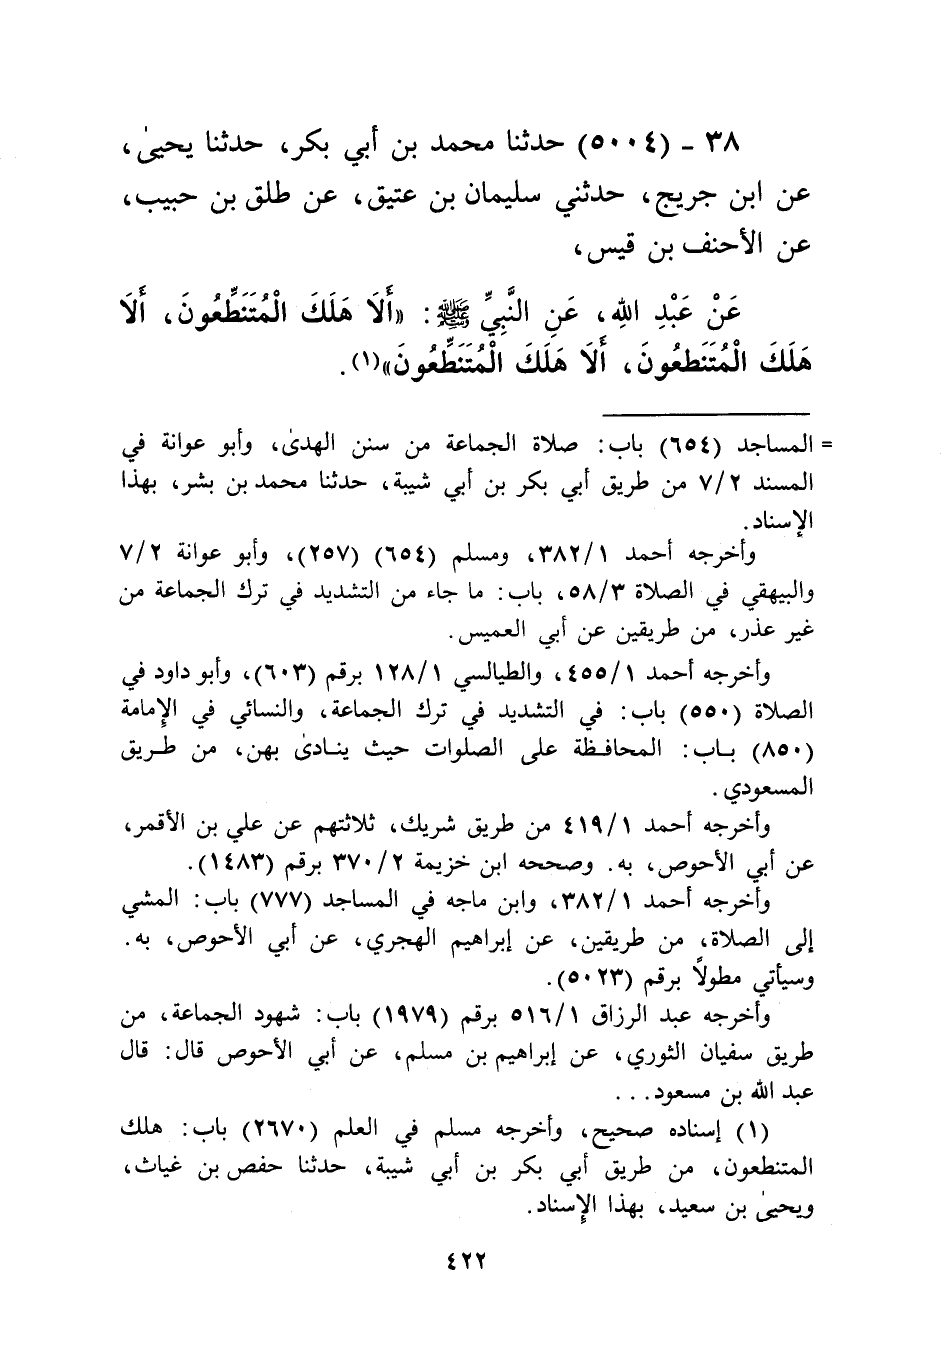 ٣٨ - (٥٠٠٤) حدثنا محمد بن أبي بكر، حدثنا يحيىٰ،
عن ابن جريج، حدثني سليمان بن عتيق، عن طلق بن حبيب،
عن الأحنف بن قيس،
عَنْ عَبْدِ اللهِ، عَنِ النَّبِيِّ ﷺ: «أَلَا هَلَكَ الْمُتَنَطِّعُونَ، أَلَا
هَلَكَ الْمُتَنَطعُونَ، أَلَا هَلَكَ الْمُتَنَطِّعُونَ»(١).
= المساجد (٦٥٤) باب: صلاة الجماعة من سنن الهدىٰ، وأبو عوانة في
المسند ٧/٢ من طريق أبي بكر بن أبي شيبة، حدثنا محمد بن بشر، بهذا
الإسناد.
وأخرجه أحمد ٣٨٢/١، ومسلم (٦٥٤) (٢٥٧)، وأبو عوانة ٧/٢
والبيهقي في الصلاة ٥٨/٣، باب: ما جاء من التشديد في ترك الجماعة من
غير عذر، من طريقين عن أبي العميس.
وأخرجه أحمد ٤٥٥/١، والطيالسي ١٢٨/١ برقم (٦٠٣)، وأبو داود في
الصلاة (٥٥٠) باب: في التشديد في ترك الجماعة، والنسائي في الإمامة
(٨٥٠) باب: المحافظة على الصلوات حيث ينادىٰ بهن، من طريق
المسعودي.
وأخرجه أحمد ٤١٩/١ من طريق شريك، ثلاثتهم عن علي بن الأقمر،
عن أبي الأحوص، به. وصححه ابن خزيمة ٣٧٠/٢ برقم (١٤٨٣).
وأخرجه أحمد ٣٨٢/١، وابن ماجه في المساجد (٧٧٧) باب: المشي
إلى الصلاة، من طريقين، عن إبراهيم الهجري، عن أبي الأحوص، به.
وسيأتي مطولاً برقم (٥٠٢٣).
وأخرجه عبد الرزاق ٥١٦/١ برقم (١٩٧٩) باب: شهود الجماعة، من
طريق سفيان الثوري، عن إبراهيم بن مسلم، عن أبي الأحوص قال: قال
عبد الله بن مسعود...
(١) إسناده صحيح، وأخرجه مسلم في العلم (٢٦٧٠) باب: هلك
المتنطعون، من طريق أبي بكر بن أبي شيبة، حدثنا حفص بن غياث،
ويحيىٰ بن سعيد، بهذا الإسناد.
٤٢٢